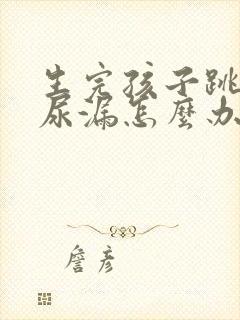 生完孩子跳
尿漏怎麼办
詹彦